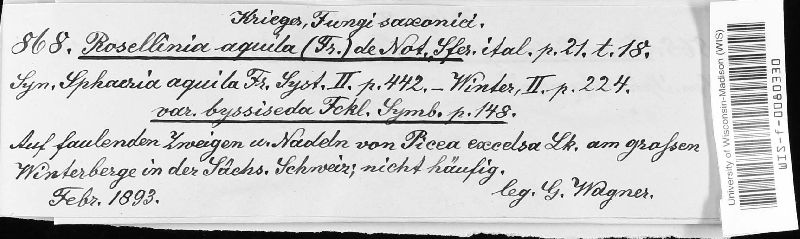 Krieger, Fungi saxonici.
868. Rosellinia aquila (Fr.) de Not. Sfer. ital. p. 21. t. 18.
Syn. Sphaeria aquila Fr. Syst. II. p. 442. – Winter, II. p. 224.
var. byssiseda Fckl. Symb. p. 148.
Auf faulenden Zweigen u. Nadeln von Picea excelsa Lk. am grossen
Winterberge in der Sächs. Schweiz; nicht häufig.
Febr. 1893. leg. G. Wagner.
University of Wisconsin-Madison (WIS)
WIS-f-0060330